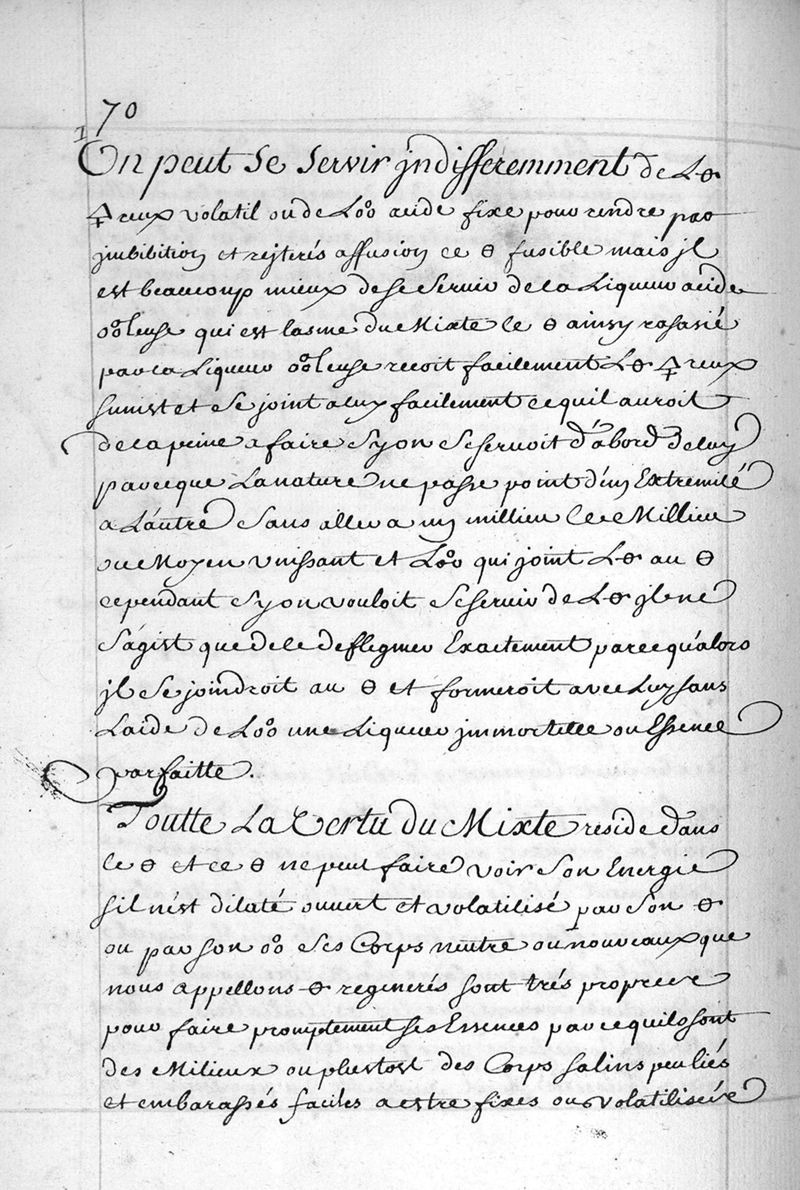 70
On peut se servir jndifferemment de L🜔
🜍reux volatil ou de Loo acide fixe pour rendre par
jmbibition et rejterés affusion ce 🜔 fusible mais jl
est beaucoup mieux de se servir de la Liqueur acide
ooleuse qui est lasme du Mixte le 🜔 ainsy rasasié
par la Liqueur ooleuse recoit facilement L🜔 🜍reux
sunist et se joint a luy facilement ce quil auroit
de la peine a faire sy on se servoit d'abord de luy
parceque La nature ne passe point d'un Extremité
a L'autre sans aller a un millieu Ce Millieu
ou Moyen vnissant et Loo qui joint L🜔 au 🜔
cependant sy on vouloit se servir de L🜔 jl ne
s'agist que de le deflegmer Exactement parce qu'alors
jl se joindroit au 🜔 et formeroit avec Luy sans
Laide de Loo une Liqueur jmmortelle ou Essence
parfaitte.
Toutte La Vertu du Mixte reside dans
le 🜔 et ce 🜔 ne peut faire voir son Energie
sil n'est dilaté ouvert et volatilisé par son 🜔
ou par son oo ses Corps neutre ou nouveaux que
nous appellons 🜔 regenerés sont trés propre
pour faire promptement ses Essences parce quils sont
des Milieux ou plustost des Corps salins peu liés
et embarassés faciles a estre fixes ou volatilisée